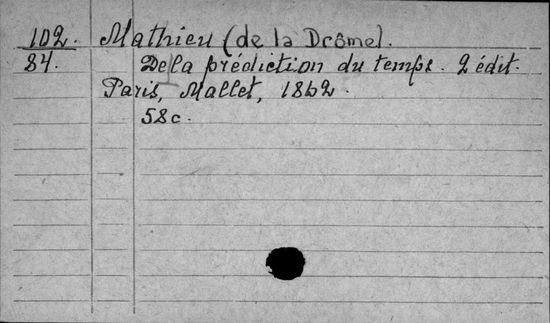 102. Mathieu (de la Drôme).
84. De la prédiction du temps. 2 édit.
Paris, Mallet, 1862.
58c.